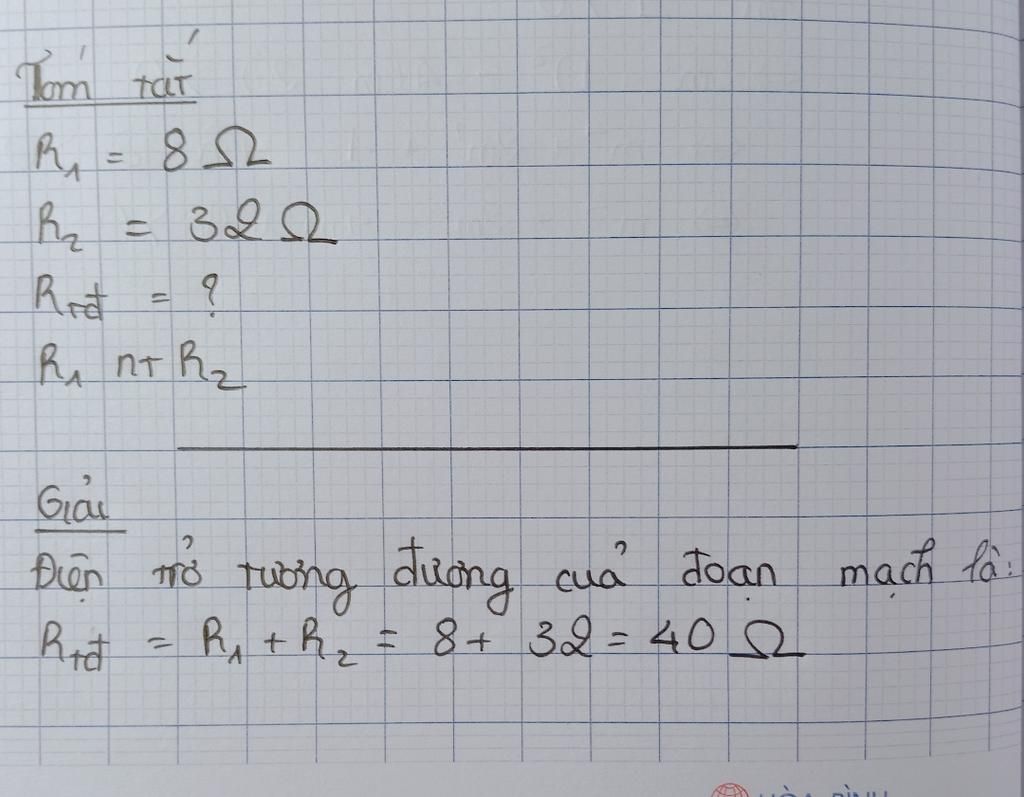 Tóm tắt
R₁ = 8 Ω
R₂ = 32 Ω
Rtđ = ?
R₁ nt R₂
Giải
Điện trở tương đương của đoạn mạch là:
Rtđ = R₁ + R₂ = 8 + 32 = 40 Ω